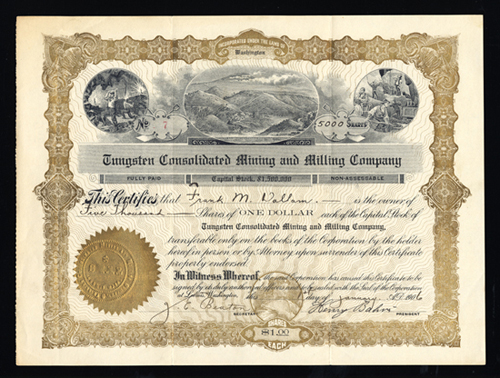 INCORPORATED UNDER THE LAWS OF
Washington
No
5000 SHARES
Tungsten Consolidated Mining and Milling Company
FULLY PAID Capital Stock, $1,500,000 NON-ASSESSABLE
This Certifies that Frank M. Dallam is the owner of
Five Thousand Shares of ONE DOLLAR each of the Capital Stock of
Tungsten Consolidated Mining and Milling Company,
transferable only on the books of the Corporation by the holder
hereof in person or by Attorney upon surrender of this Certificate
properly endorsed.
In Witness Whereof, the said Corporation has caused this Certificate to be
signed by its duly authorized officers and to be sealed with the Seal of the Corporation
at Washington, this day of January A.D. 1906
SECRETARY
SHARES
$1.00
EACH